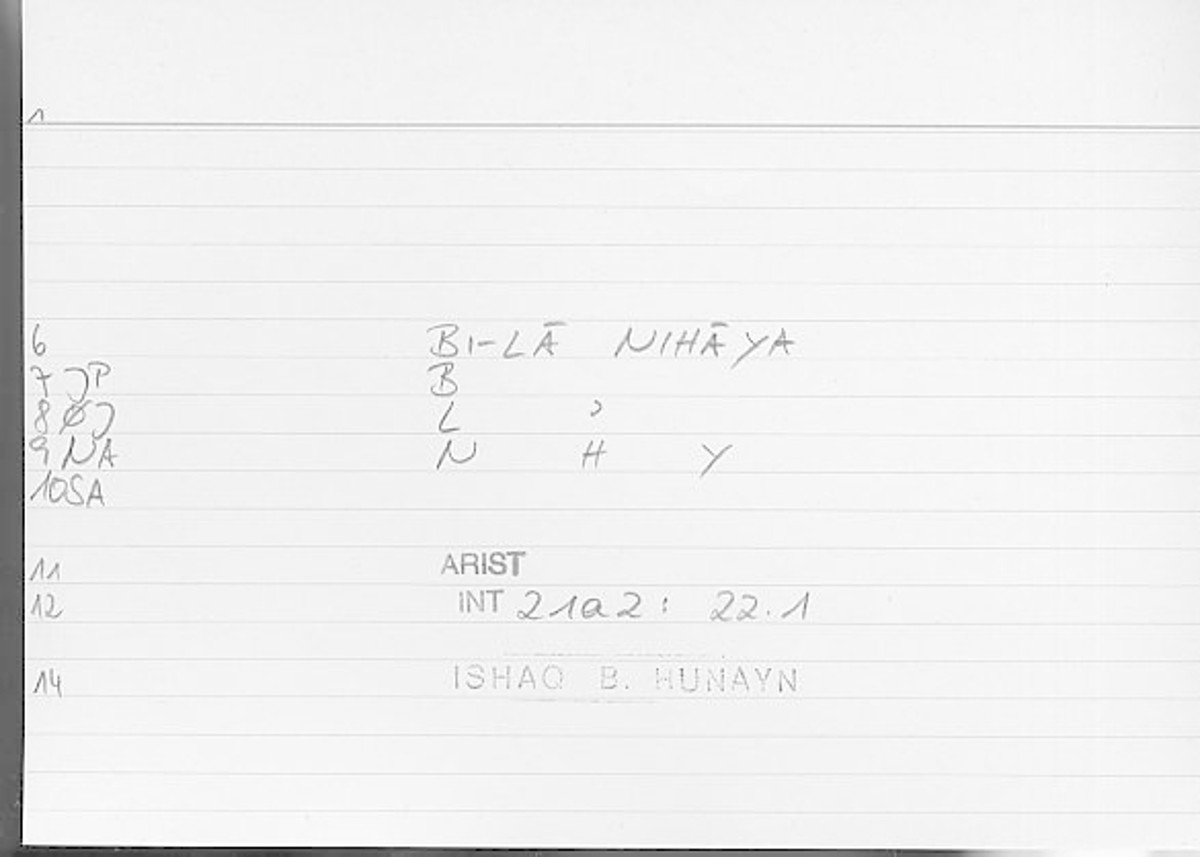 1
6 BI-LĀ NIHĀYA
7 JP B
8 ØJ L ʾ
9 NA N H Y
10SA
11 ARIST
12 INT 21a2: 22.1
14 ISHAQ B. HUNAYN